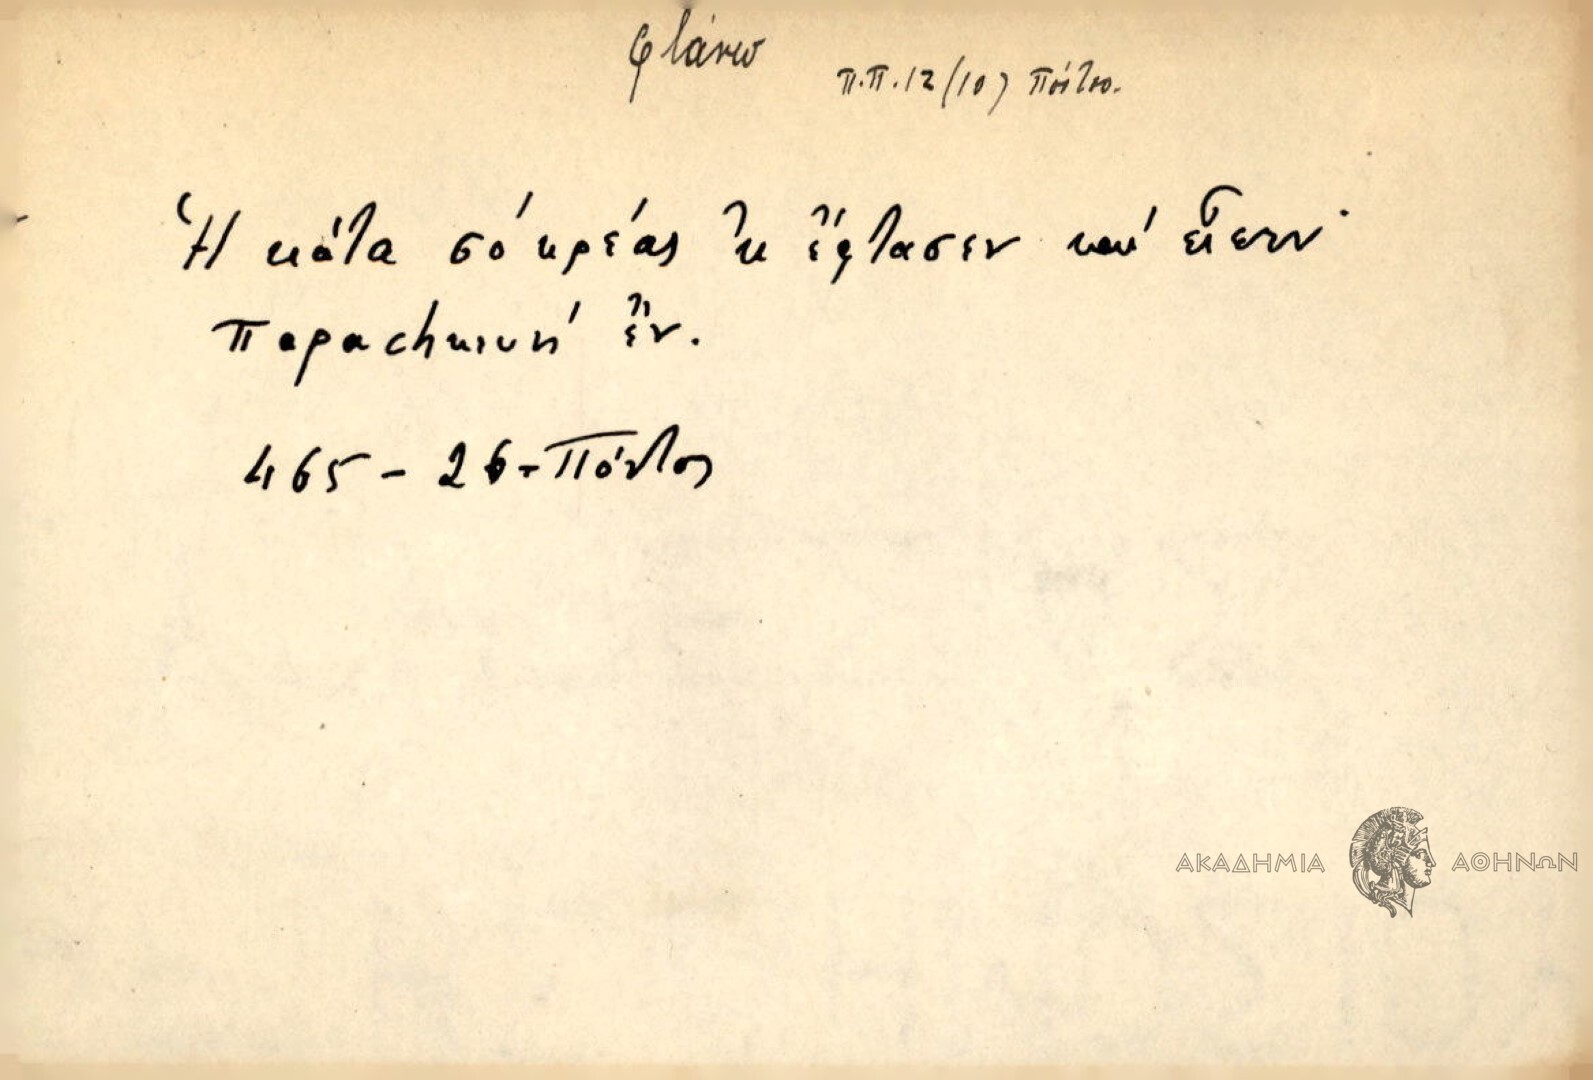 φτάνω
Π.Π. 12 (10) Πόντου.
Ἡ κάτα σό κρέας 'κ ἔφτασεν καί εἶπεν·
Παρασκευή ἔν.
465 - 26 - Πόντος
ΑΚΑΔΗΜΙΑ ΑΘΗΝΩΝ